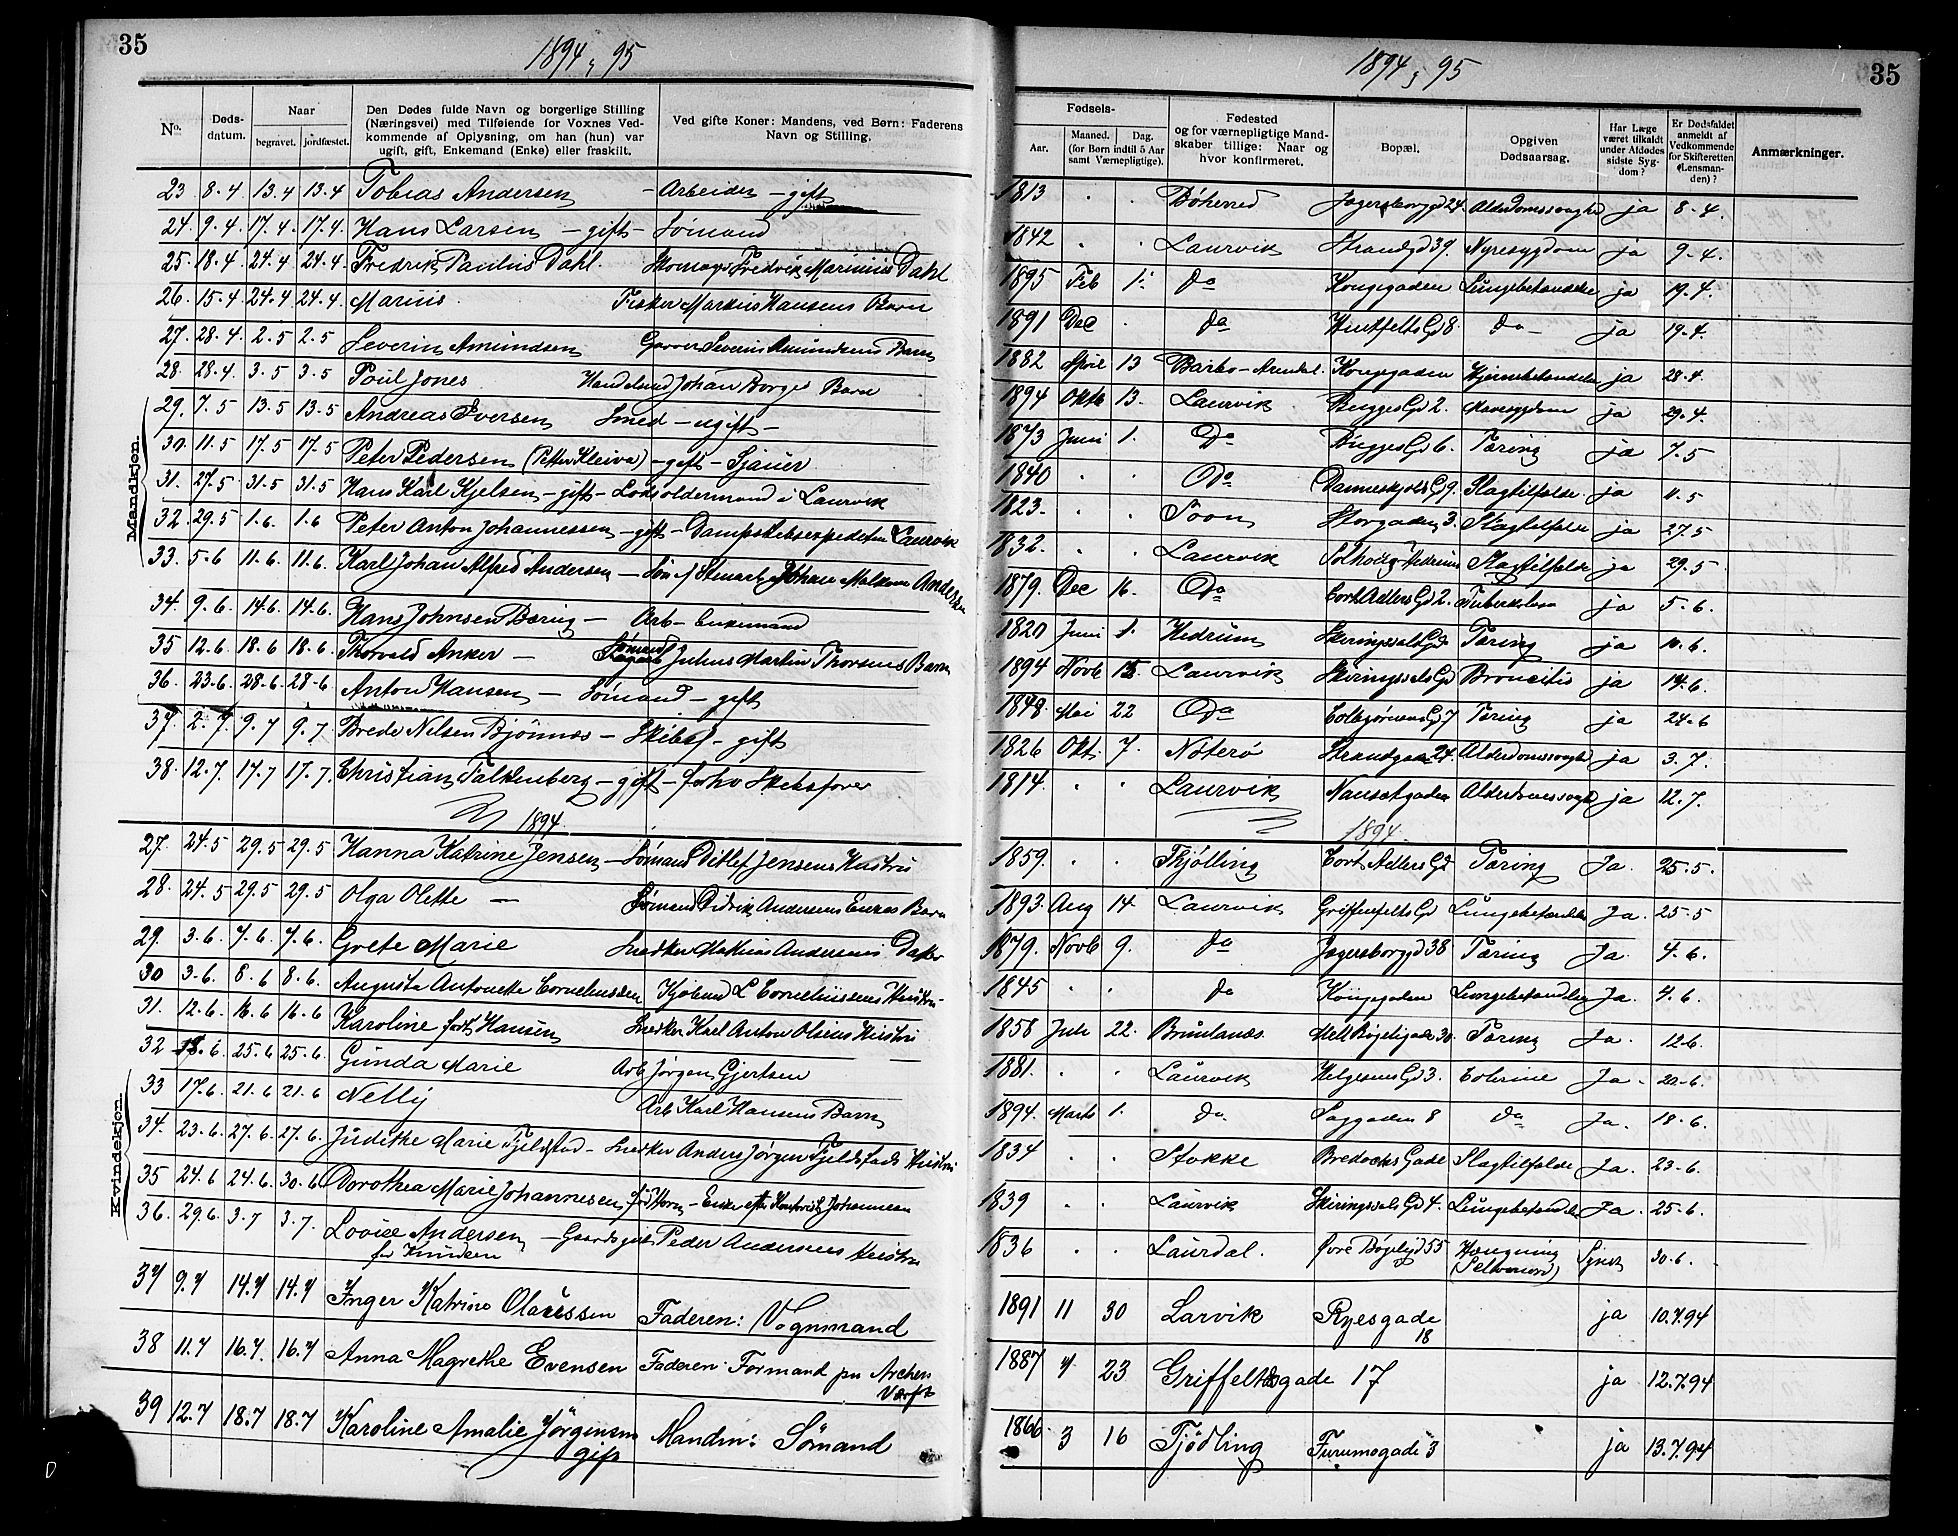 35
1894, 95
No.
Døds-
datum.
Naar
begravet.
jordfæstet.
Den Dødes fulde Navn og borgerlige Stilling
(Næringsvei) med Tilføiende for Voxnes Ved-
kommende af Oplysning, om han (hun) var
ugift, gift, Enkemand (Enke) eller fraskilt.
Ved gifte Koner: Mandens, ved Børn: Faderens
Navn og Stilling.
Mandkjøn.
23 8.4 13.4 13.4 Tobias Andersen - Arbeider - gift
24. 9.4 17.4 17.4. Hans Larsen - gift - Sømand
25. 18.4 24.4 24.4 Fredrik Paulus Dahl. Fredrik Marinius Dahl
26. 15.4 24.4 24.4. Marius. Fisker Markus Hansens Barn
27. 28.4 2.5 2.5 Severin Amundsen Garver Severin Amundsens Barn
28. 28.4. 3.5 3.5 Poul Jones. Johan Borges Barn
29. 7.5 13.5 13.5 Andreas Iversen Smed - ugift -
30. 11.5 17.5 17.5 Peter Pedersen (Petter Kleiva) - gift - Sjauer
31. 27.5 31.5 31.5 Hans Karl Kjelsen - gift - Lodsoldermand i Laurvik
32. 29.5 1.6. 1.6 Peter Anton Johannessen - gift - Dampskibsexpeditør Laurvik
33. 5.6 11.6. 11.6. Karl Johan Alfred Andersen - Søn af Stuart Johan Andersen
34. 9.6. 14.6. 14.6. Hans Johnsen Bæring - Arb - Enkemand
35 12.6 18.6 18.6. Thorvald Anker - Sømand Julius Martin Thorsens Barn
36. 23.6. 28.6. 28.6 Anton Hansen - Sømand - gift
37. 2.7. 9.7 9.7 Brede Nilsen Bjønnes - Skibsf - gift
38. 12.7. 17.7 17.7. Christian Falkenberg - gift - forhv Skibsfører
1894
Kvindekjøn.
27. 24.5 29.5 29.5 Hanna Katrine Jensen - Sømand Ditlef Jensens Hustru
28. 24.5 29.5 29.5 Olga Olette - Sømand Didrik Andersens Enkes Barn
29. 3.6 7.6. 7.6. Grete Marie Snedker Mathias Andersens Datter
30 3.6. 8.6 8.6. Augusta Antonette Corneliussen Kjøbmd L Corneliussens Hustru
31. 12.6 16.6 16.6 Karoline født Hansen Snedker Karl Anton Olsens Hustru
32 18.6. 25.6 25.6. Gunda Marie Arb Jørgen Gjertsen
33 17.6. 21.6 21.6 Nelly Arb Karl Hansens Barn
34. 23.6. 27.6. 27.6. Judithe Marie Fjeldstad - Snedker Anders Jørgen Fjeldstads Hustru
35 24.6 24.6. 30.6 Dorothea Marie Johannesen
36. 29.6. 3.7 3.7. Lovise Andersen - Gaardsgut Peder Andersens Hustru
før Knudsen
37 9.7 14.7 14.7 Inger Katrine Olaussen Faderen: Vognmand
38 11.7 16.7. 16.7 Anna Magrethe Evensen Faderen: Formand paa Archers
Værft
39 12.7 18.7 18.7 Karoline Amalie Jörgensen Manden: Sømand
gift
35
1894, 95
Fødsels-
Aar.
Maaned. Dag.
(for Børn indtil 5 Aar
samt Værnepligtige).
Fødested
og for værnepligtige Mand-
skaber tillige: Naar og
hvor konfirmeret.
Bopæl.
Opgiven
Dødsaarsag.
Har Læge
været tilkaldt
under Afdødes
sidste Syg-
dom?
Er Dødsfaldet
anmeldt af
Vedkommende
for Skifteretten
(Lensman-
den)?
Anmærkninger.
1813 . . Bøherred Jegersborggd 24. Alderdomssvaghed ja 8.4.
1842 . . Laurvik Strandgd 39. Nyresygdom ja 9.4.
1895 Feb 1. do Kongegaden Lungebetændelse ja 19.4.
1891 Dec . do Huitfelts Gd 8. do - ja 19.4.
1882 April 13 Barbo - Arendal. Kongegaden Hjernebetændelse ja 28.4.
1894 Oktb 13. Laurvik Bugges Gd 2. Mavesygdom ja 29.4.
1873 Juni 1. Do Bugges Gd 6. Tæring ja 7.5
1840 . . Do Danneskjolds Gd 9. Slagtilfælde ja 11.5
1823. . . Soon Storgaden 3. Slagtilfælde ja 27.5
1832. . . Laurvik Hedrum Slagtilfælde ja 29.5
1879. Dec 16. Do Cort Adlers Gd 2. Tuberkulose ja 5.6.
1820 Juni 1. Hedrum Skiringssals Gd Tæring ja 10.6.
1894 Novb 15 Laurvik Skiringssals Gd Broncitis ja 14.6.
1848. Mai 22 Do Colbjørnsens Gd 7 Tæring ja 24.6
1826 Okt. 7. Nøterø Strandgaden 24. Alderdomssvaghed ja 3.7.
1814. . . Laurvik Nansetgaden Alderdomssvagh ja 12.7.
1894.
1859. . . Thjølling Cort Adlers Gd Tæring Ja. 25.5.
1893. Aug 14 Laurvik Griffenfelts Gd Lungebetændelse Ja. 25.5
1879. Novb 9. do Jegersborggd 38 Tæring Ja. 4.6.
1845 . . do Kongegaden Lungebetændelse Ja. 4.6.
1858 Juli 22. Brunlanæs. Mell Bøgeligade 30. Tæring Ja. 12.6.
1881. . . Laurvik Helgesens Gd 3. Colerine Ja. 20.6.
1894. Marts 1. do Saggaden 8 do Ja. 18.6.
1834 . . Stokke Bredochs Gade Slagtilfælde Ja. 23.6.
1839 . . Laurvik Skiringssals Gd 4. Lungebetændelse Ja. 25.6.
1836 . . Laurdal. Øvre Bøgeligd 55 Hængning
(Selvmord) 30.6.
1891 11 30 Larvik Ryesgade
18 ja 10.7.94
1887 7 23 Griffeltsgade 17 ja 12.7.94
1866 3 16 Tjødling Furumogade 3 ja 13.7.94